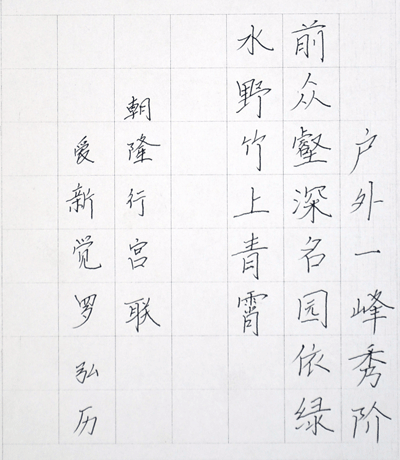 户外一峰秀阶
前众壑深名园依绿
水野竹上青霄
朝隆行宫联
爱新觉罗弘历